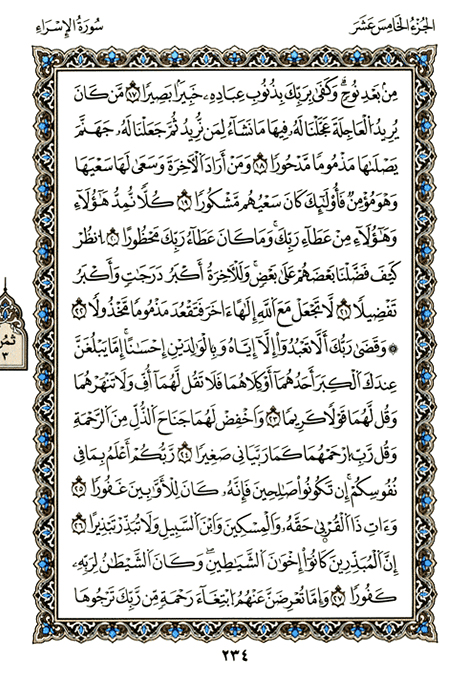 الجُزْءُ الخَامِسَ عَشَرَ
سُورَةُ الإِسْرَاءِ
مِنۢ بَعْدِ نُوحٍ ۗ وَكَفَىٰ بِرَبِّكَ بِذُنُوبِ عِبَادِهِۦ خَبِيرًۢا بَصِيرًا ١٧ مَّن كَانَ
يُرِيدُ ٱلْعَاجِلَةَ عَجَّلْنَا لَهُۥ فِيهَا مَا نَشَآءُ لِمَن نُّرِيدُ ثُمَّ جَعَلْنَا لَهُۥ جَهَنَّمَ
يَصْلَىٰهَا مَذْمُومًا مَّدْحُورًا ١٨ وَمَنْ أَرَادَ ٱلْأَخِرَةَ وَسَعَىٰ لَهَا سَعْيَهَا
وَهُوَ مُؤْمِنٌ فَأُو۟لَٰٓئِكَ كَانَ سَعْيُهُم مَّشْكُورًا ١٩ كُلًّا نُّمِدُّ هَٰٓؤُلَآءِ
وَهَٰٓؤُلَآءِ مِنْ عَطَآءِ رَبِّكَ ۚ وَمَا كَانَ عَطَآءُ رَبِّكَ مَحْظُورًا ٢٠ ٱنظُرْ
كَيْفَ فَضَّلْنَا بَعْضَهُمْ عَلَىٰ بَعْضٍ ۚ وَلَلْأَخِرَةُ أَكْبَرُ دَرَجَٰتٍ وَأَكْبَرُ
تَفْضِيلًا ٢١ لَّا تَجْعَلْ مَعَ ٱللَّهِ إِلَٰهًا ءَاخَرَ فَتَقْعُدَ مَذْمُومًا مَّخْذُولًا ٢٢
۞ وَقَضَىٰ رَبُّكَ أَلَّا تَعْبُدُوٓا۟ إِلَّآ إِيَّاهُ وَبِٱلْوَٰلِدَيْنِ إِحْسَٰنًا ۚ إِمَّا يَبْلُغَنَّ
عِندَكَ ٱلْكِبَرَ أَحَدُهُمَآ أَوْ كِلَاهُمَا فَلَا تَقُل لَّهُمَآ أُفٍّ وَلَا تَنْهَرْهُمَا
وَقُل لَّهُمَا قَوْلًا كَرِيمًا ٢٣ وَٱخْفِضْ لَهُمَا جَنَاحَ ٱلذُّلِّ مِنَ ٱلرَّحْمَةِ
وَقُل رَّبِّ ٱرْحَمْهُمَا كَمَا رَبَّيَانِى صَغِيرًا ٢٤ رَّبُّكُمْ أَعْلَمُ بِمَا فِى
نُفُوسِكُمْ ۚ إِن تَكُونُوا۟ صَٰلِحِينَ فَإِنَّهُۥ كَانَ لِلْأَوَّٰبِينَ غَفُورًا ٢٥
وَءَاتِ ذَا ٱلْقُرْبَىٰ حَقَّهُۥ وَٱلْمِسْكِينَ وَٱبْنَ ٱلسَّبِيلِ وَلَا تُبَذِّرْ تَبْذِيرًا ٢٦
إِنَّ ٱلْمُبَذِّرِينَ كَانُوٓا۟ إِخْوَٰنَ ٱلشَّيَٰطِينِ ۖ وَكَانَ ٱلشَّيْطَٰنُ لِرَبِّهِۦ
كَفُورًا ٢٧ وَإِمَّا تُعْرِضَنَّ عَنْهُمُ ٱبْتِغَآءَ رَحْمَةٍ مِّن رَّبِّكَ تَرْجُوهَا
ثُمُن
٣
٢٣٤